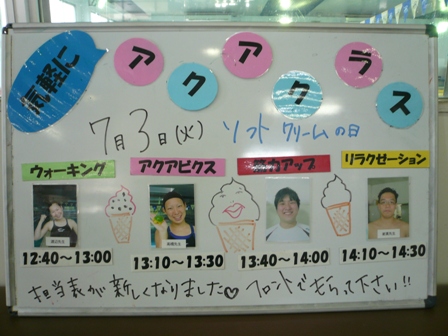 気軽に
アクアクラス
7月3日(火) ソフトクリームの日
ウォーキング アクアビクス 体力アップ リラクゼーション
12:40～13:00 13:10～13:30 13:40～14:00 14:10～14:30
担当表が新しくなりました♡ フロントでもらって下さい!!